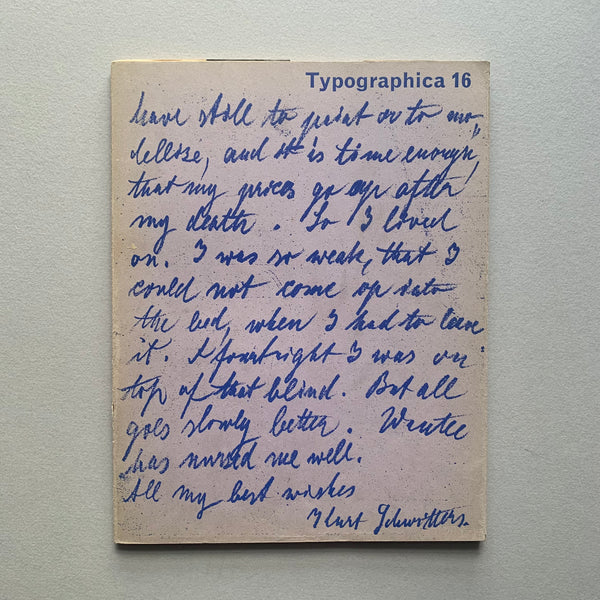 Typographica 16
have still to paint or to mo-
dellose, and it is time enough,
that my prices go up after
my death. So I lived
on. I was so weak, that I
could not come op into
the bed, when I had to leave
it. A fourtnight I was on
top of that blind. But all
goes slowly better. Wantee
has nursed me well.
All my best wishes
Kurt Schwitters.